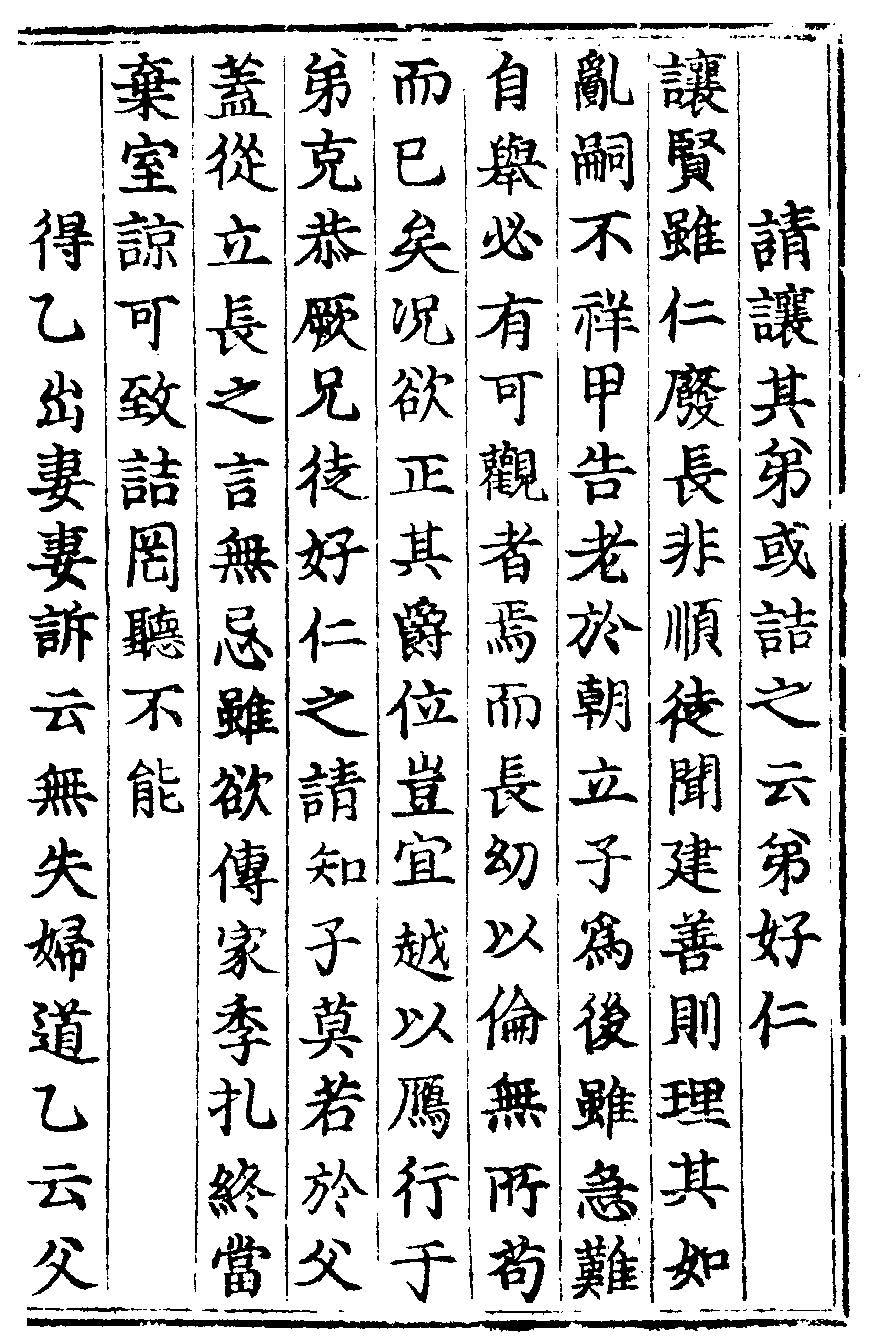 請讓其弟或詰之云弟好仁
讓賢雖仁廢長非順徒聞建善則理其如
亂嗣不祥甲告老於朝立子爲後雖急難
自舉必有可觀者焉而長幼以倫無所苟
而已矣况欲正其爵位豈宜越以鴈行于
弟克恭厥兄徒好仁之請知子莫若於父
蓋從立長之言無忌雖欲傳家季扎終當
棄室諒可致詰罔聽不能
得乙出妻妻訴云無失婦道乙云父